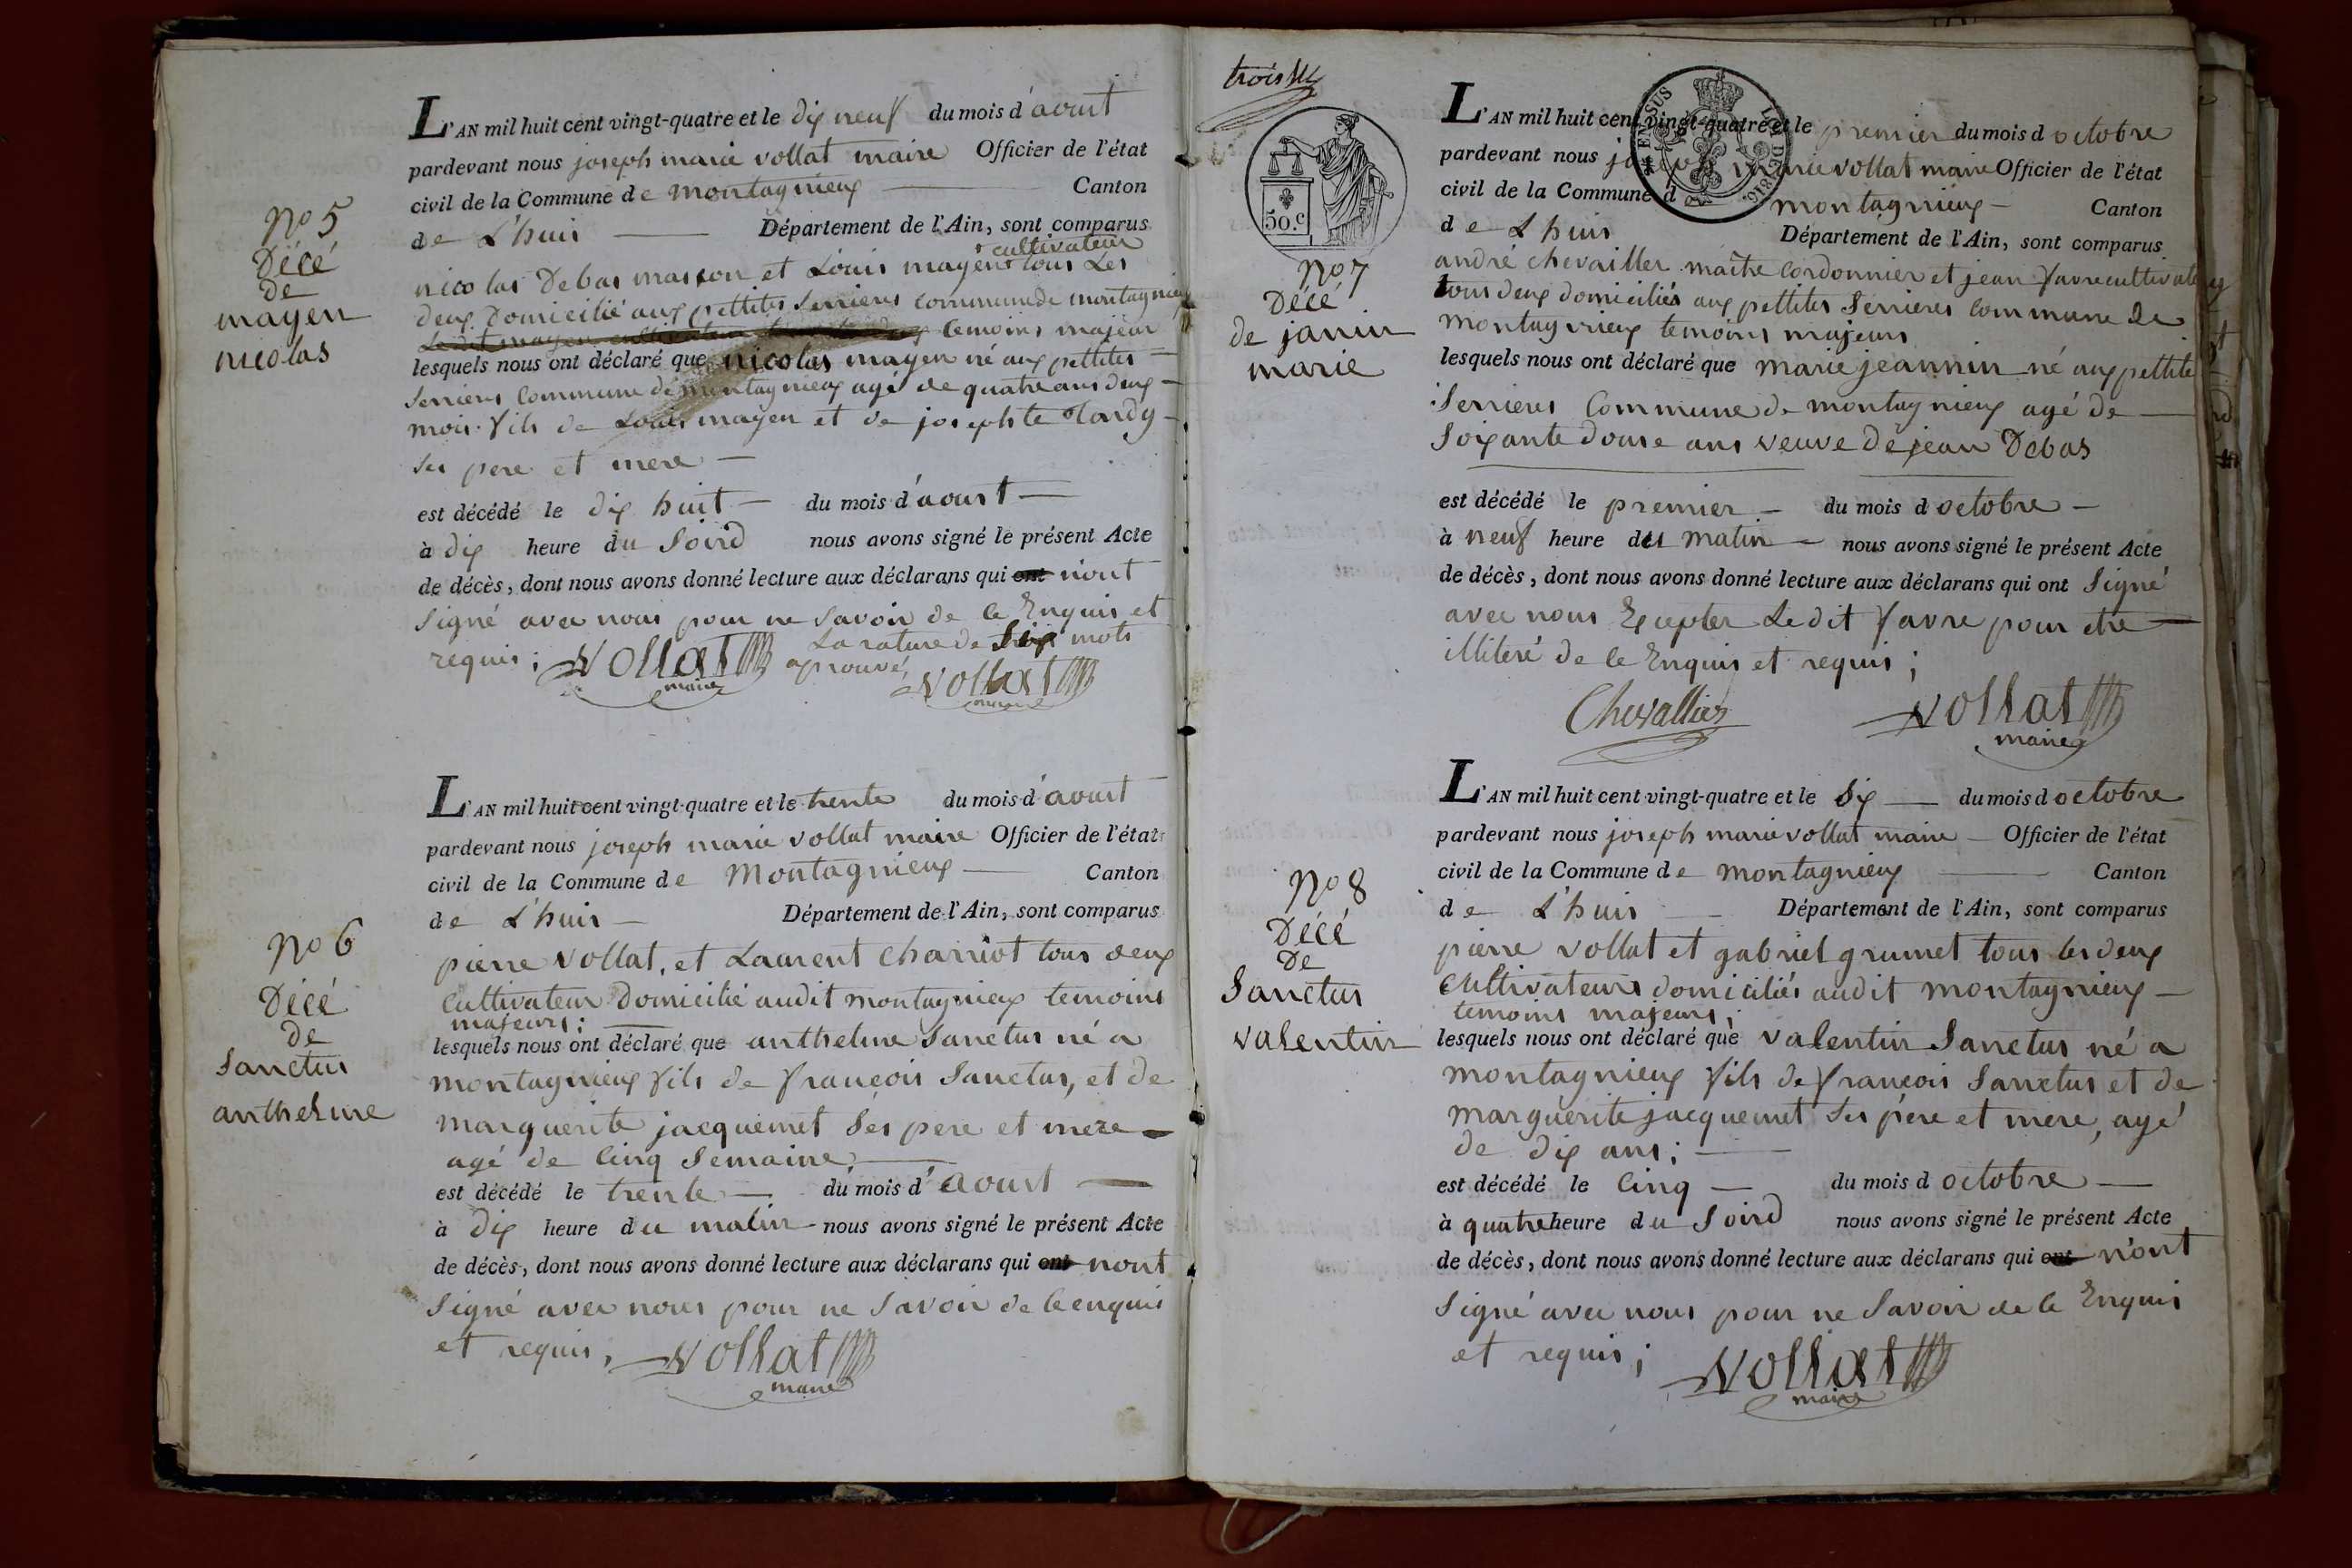 No 5
Décé
de
mayen
nicolas
L'AN mil huit cent vingt-quatre et le dix neuf du mois d'aoust
pardevant nous joseph marie vollat maire Officier de l'état
civil de la Commune de montagnieux Canton
de L'huis Département de l'Ain, sont comparus
cultivateur
nicolas Debas masson et Louis mayen tous Les
deux Domicilié aux pettites Serrieres commune de montagnieux
temoins majeur
lesquels nous ont déclaré que nicolas mayen né aux pettites
Serrieres Commune de montagnieux agé de quatre ans deux
mois fils de Louis mayen et de josephte Tardy
ses pere et mere
est décédé le dix huit du mois d'aoust
à dix heure du Soird nous avons signé le présent Acte
de décès, dont nous avons donné lecture aux déclarans qui ont n'ont
Signé avec nous pour ne Savoir de ce Enquis et
requis; Vollat maire
La rature de Six mots
aprouvé, Vollat maire
No 6
Décé
de
Sanctus
anthelme
L'AN mil huit cent vingt-quatre et le trente du mois d'aoust
pardevant nous joseph marie vollat maire Officier de l'état
civil de la Commune de Montagnieux Canton
de L'huis Département de l'Ain, sont comparus
pierre vollat, et Laurent charriot tous deux
Cultivateur Domicilié audit montagnieux temoins
majeurs;
lesquels nous ont déclaré que anthelme Sanctus né a
montagnieux fils de françois Sanctus, et de
marguerite jacquemet Ses pere et mere
agé de Cinq Semaine;
est décédé le trente du mois d'aoust
à dix heure du matin nous avons signé le présent Acte
de décès, dont nous avons donné lecture aux déclarans qui ont nont
Signé avec nous pour ne Savoir de ce enquis
et requis, Vollat
maire
trois
50.c
No 7
Décé
de janin
marie
L'AN mil huit cent vingt-quatre et le premier du mois d octobre
pardevant nous joseph marie vollat maire Officier de l'état
civil de la Commune d montagnieux Canton
de L huis Département de l'Ain, sont comparus
andré chevailler maitre Cordonnier et jean favre cultivateur
tous deux domiciliés aux pettites Serrieres Commune de
montagnieux temoins majeurs
lesquels nous ont déclaré que marie jeannin né aux pettite
Serrieres Commune de montagnieux agé de
Soixante douse ans veuve de jean Debas
est décédé le premier du mois d octobre
à neuf heure du matin nous avons signé le présent Acte
de décès, dont nous avons donné lecture aux déclarans qui ont Signé
avec nous Exepter Ledit favre pour etre
illiteré de ce Enquis et requis;
Chevallier Vollat
maire
No 8
Décé
De
Sanctus
valentin
L'AN mil huit cent vingt-quatre et le Six du mois d octobre
pardevant nous joseph marie vollat maire Officier de l'état
civil de la Commune de montagnieux Canton
de L'huis Département de l'Ain, sont comparus
pierre vollat et gabriel grumet tous les deux
Cultivateurs domiciliés audit montagnieux
temoins majeurs;
lesquels nous ont déclaré que valentin Sanctus né a
montagnieux fils de françois Sanctus et de
marguerite jacquemet Ses père et mere, agé
de dix ans;
est décédé le Cinq du mois d octobre
à quatre heure du Soird nous avons signé le présent Acte
de décès, dont nous avons donné lecture aux déclarans qui ont n'ont
Signé avec nous pour ne Savoir de ce Enquis
et requis; Vollat
maire